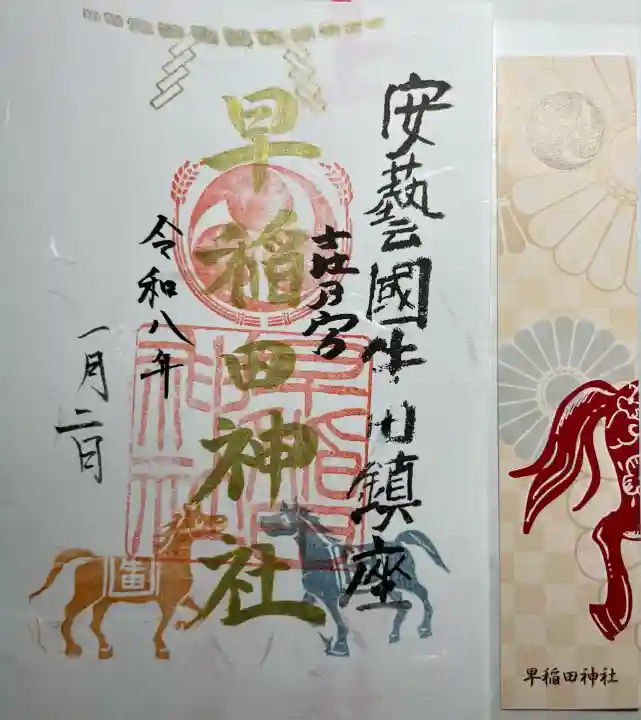 安藝國牛田鎮座
壵乃宮
早稲田神社
令和八年
一月二日
早稲田神社